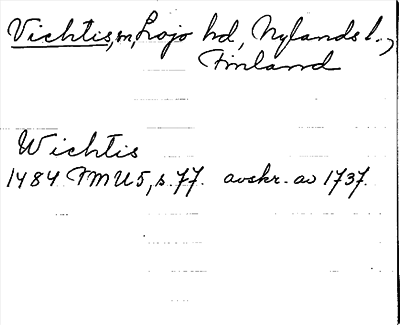 Vichtis, sn, Lojo hd, Nylands l.,
Finland
Wichtis
1484 FMU5, s. 77. avskr. av 1737.